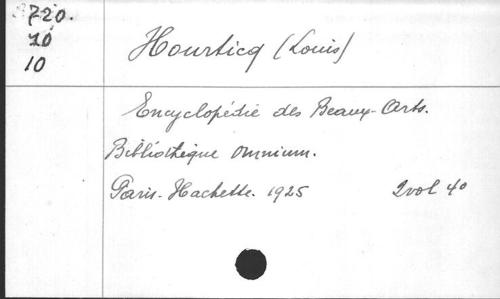 720.
10
10
Hourticq (Louis)
Encyclopédie des Beaux-Arts.
Bibliothèque Omnium.
Paris. Hachette. 1925 2 vol 4°